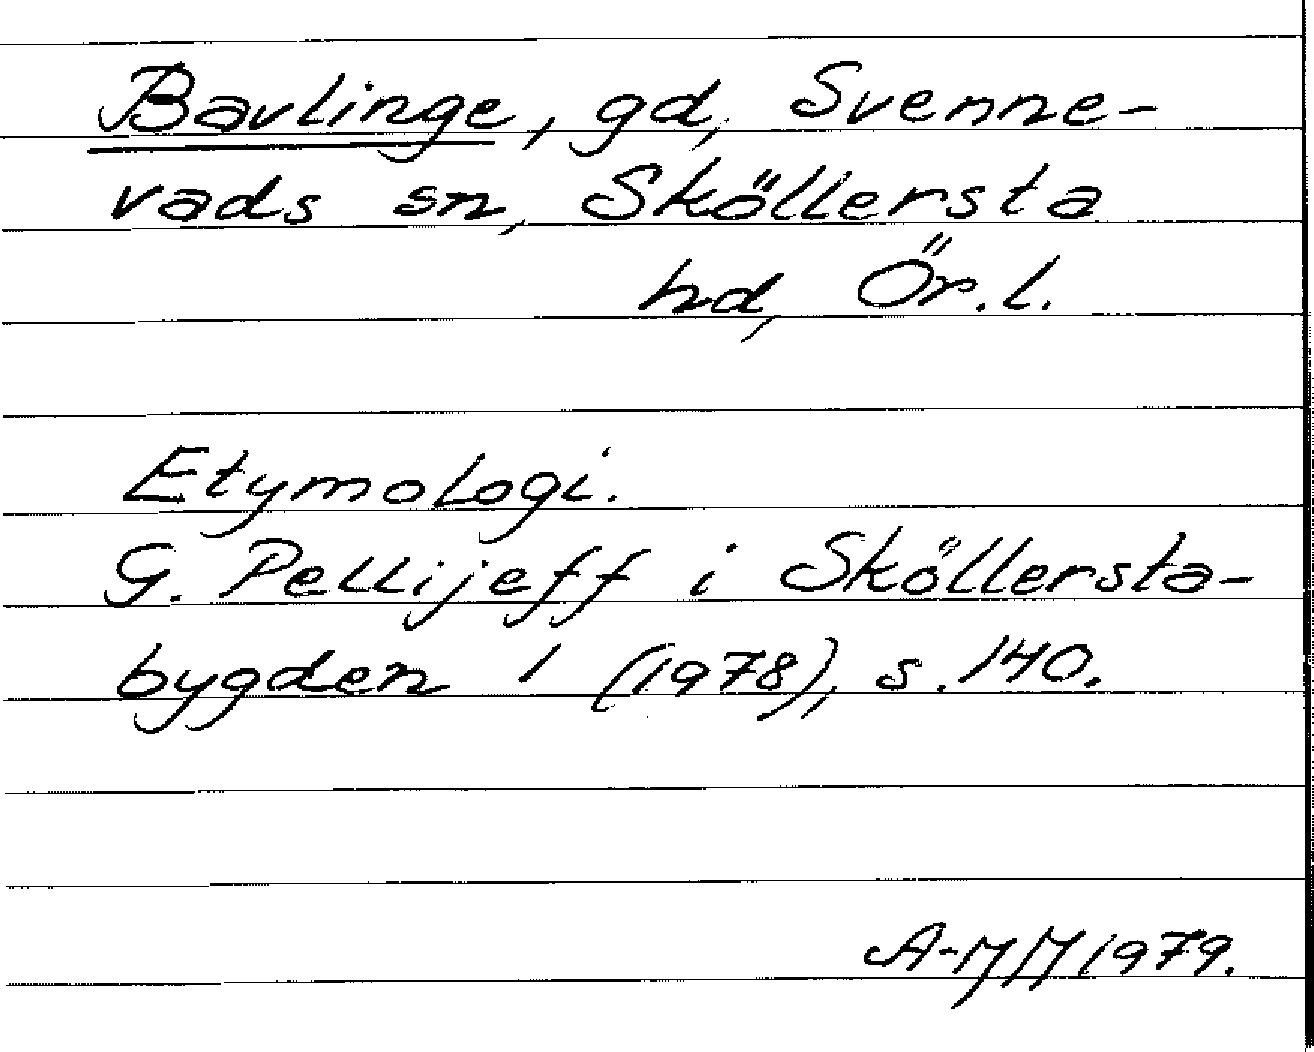 Bavlinge, gd, Svenne-
vads sn, Sköllersta
hd, Ör. l.
Etymologi.
G. Pellijeff i Sköllersta-
bygden 1 (1978), s. 140.
A-MM 1979.